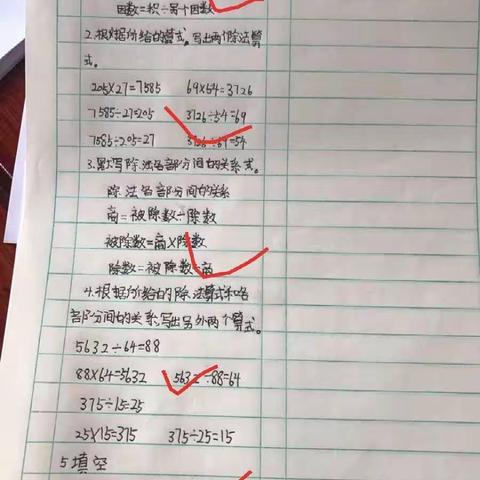 因数=积÷另个因数
2.根据所给的算式,写出两个除法算
式。
205×27=7585 69×54=3726
7585÷27=205 3726÷54=69
7585÷205=27 3726÷69=54
3.默写除法各部分间的关系式。
除法各部分间的关系
商=被除数÷除数
被除数=商×除数
除数=被除数÷商
4.根据所给的除法算式和各
各部分间的关系,写出另外两个算式。
5632÷64=88
88×64=5632 5632÷88=64
375÷15=25
25×15=375 375÷25=15
5填空